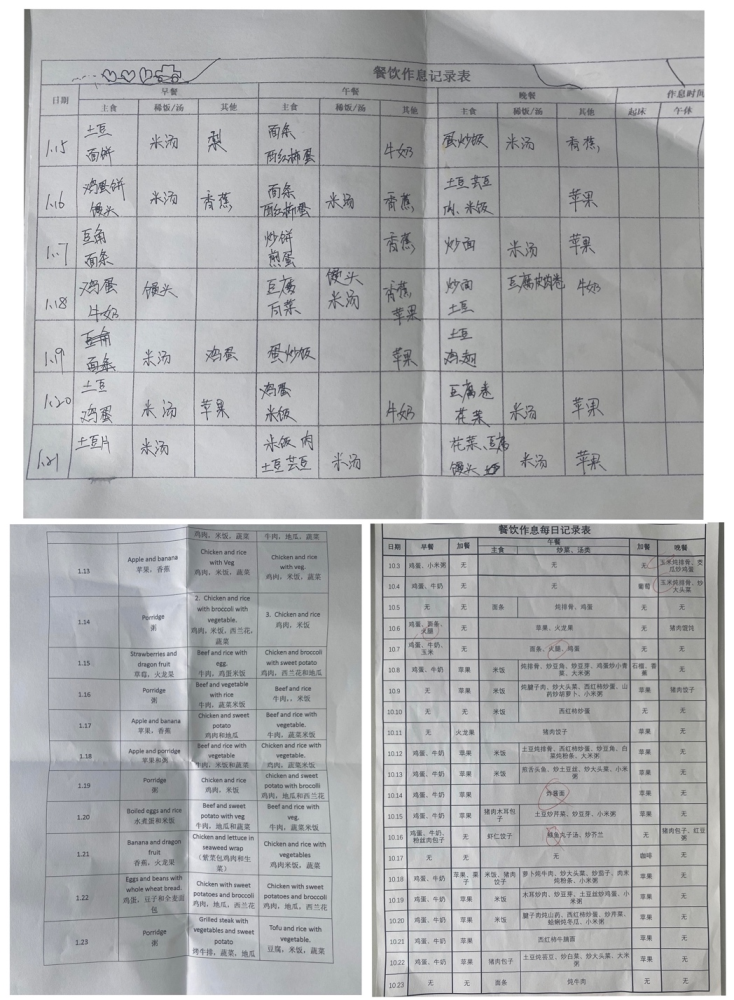 餐饮作息记录表
日期 早餐 午餐 晚餐 作息时间
主食 稀饭/汤 其他 主食 稀饭/汤 其他 主食 稀饭/汤 其他 起床 午休
土豆 面条 蛋炒饭
1.15 面饼 米汤 梨 西红柿蛋 牛奶 米汤 香蕉
鸡蛋饼 面条 土豆芸豆
1.16 馒头 米汤 香蕉 西红柿蛋 米汤 香蕉 肉、米饭 苹果
豆角 炒饼 香蕉 炒面 米汤 苹果
1.17 面条 煎蛋
鸡蛋 馒头 豆腐 馒头 香蕉 炒面 牛奶
1.18 牛奶 米汤 苹果 土豆
豆角 土豆
1.19 面条 米汤 鸡蛋 蛋炒饭 苹果 鸡翅
土豆 鸡蛋 豆腐卷
1.20 鸡蛋 米汤 苹果 米饭 牛奶 花菜 米汤 苹果
土豆片 米汤 米饭 肉 花菜、豆腐
1.21 土豆芸豆 米汤 馒头 米汤 苹果
鸡肉，米饭，蔬菜 牛肉，地瓜，蔬菜
1.13 Apple and banana Chicken and rice with Veg Chicken and rice with veg.
苹果，香蕉 鸡肉，米饭，蔬菜 鸡肉，米饭，蔬菜
1.14 Porridge 2. Chicken and rice with broccoli with vegetable. 3. Chicken and rice
粥 鸡肉，米饭，西兰花，蔬菜 鸡肉，米饭
1.15 Strawberries and dragon fruit Beef and rice with egg. Chicken and broccoli with sweet potato
草莓，火龙果 牛肉，鸡蛋米饭 鸡肉，西兰花和地瓜
1.16 Porridge Beef and vegetable with rice Beef and rice
粥 牛肉，蔬菜米饭 牛肉，、米饭
1.17 Apple and banana Chicken and sweet potato Beef and rice with vegetable.
苹果，香蕉 鸡肉和地瓜 牛肉，蔬菜米饭
1.18 Apple and porridge Beef and rice with vegetable Chicken and rice with vegetable.
苹果和粥 牛肉，蔬菜米饭 鸡肉，蔬菜米饭
1.19 Porridge Chicken and rice chicken and sweet potato with broccoli
粥 鸡肉，米饭 鸡肉，地瓜和西兰花
1.20 Boiled eggs and rice Beef and sweet potato with veg Beef and rice with veg.
水煮蛋和米饭 牛肉，地瓜和蔬菜 牛肉，蔬菜米饭
1.21 Banana and dragon fruit Chicken and lettuce in seaweed wrap Chicken and rice with vegetables
香蕉，火龙果 （紫菜包鸡肉和生菜） 鸡肉米饭，蔬菜
1.22 Eggs and beans with whole wheat bread. Chicken with sweet potatoes and broccoli Chicken with sweet potatoes and broccoli
鸡蛋，豆子和全麦面包 鸡肉，地瓜，西兰花 鸡肉，地瓜，西兰花
1.23 Porridge Grilled steak with vegetables and sweet potato Tofu and rice with vegetable.
粥 烤牛排，蔬菜，地瓜 豆腐，米饭，蔬菜
餐饮作息每日记录表
日期 早餐 加餐 午餐 加餐 晚餐
主食 炒菜、汤类
10.3 鸡蛋、小米粥 无 无 无 玉米炖排骨、黄瓜炒鸡蛋
10.4 鸡蛋、牛奶 无 无 葡萄 玉米炖排骨、炒大头菜
10.5 无 无 面条 炖排骨，鸡蛋 无 无
10.6 鸡蛋、面条、火腿 无 苹果、火龙果 无 猪肉馄饨
10.7 鸡蛋、牛奶、玉米 无 面条、火腿、鸡蛋 无 无
10.8 鸡蛋、牛奶 苹果 米饭 炖排骨、炒豆角、炒豆芽、鸡蛋炒小青菜、大米粥 石榴、香蕉 无
10.9 无 苹果 米饭 炖腱子肉、炒大头菜、西红柿炒蛋、山药炒胡萝卜、小米粥 苹果 猪肉饺子
10.10 无 无 米饭 西红柿炒蛋 无 无
10.11 无 火龙果 猪肉饺子 苹果 无
10.12 鸡蛋、牛奶 苹果 米饭 土豆炖排骨、西红柿炒蛋、炒豆角、白菜炖粉条、大米粥 苹果 无
10.13 鸡蛋、牛奶 苹果 米饭 煎舌头鱼、炒土豆丝、炒大头菜、小米粥 苹果 无
10.14 鸡蛋、牛奶 苹果 炸酱面 苹果 无
10.15 鸡蛋、牛奶 苹果 猪肉木耳包子 土豆炒芹菜、炒豆芽、小米粥 苹果 无
10.16 鸡蛋、牛奶、粉丝肉包子 无 虾仁饺子 鲅鱼丸子汤、炒芥兰 无 猪肉包子、红豆粥
10.17 无 无 无 咖啡 无
10.18 鸡蛋、牛奶 苹果、栗子 米饭、猪肉饺子 萝卜炖牛肉、炒大头菜、炒茄子、肉末炖粉条、小米粥 苹果 无
10.19 鸡蛋、牛奶 苹果 米饭 木耳炒肉、炒豆芽、土豆丝炒鸡蛋、小米粥 苹果 无
10.20 鸡蛋、牛奶 苹果 米饭 腱子肉炖山药、西红柿炒蛋、炒芹菜、蛤蜊炖冬瓜、小米粥 苹果 无
10.21 鸡蛋、牛奶 苹果 西红柿牛腩面 苹果 无
10.22 鸡蛋、牛奶 苹果 猪肉包子 土豆炖芸豆、炒白菜、炒大头菜、大米粥 苹果 无
10.23 无 无 面条 炖牛肉 无 无